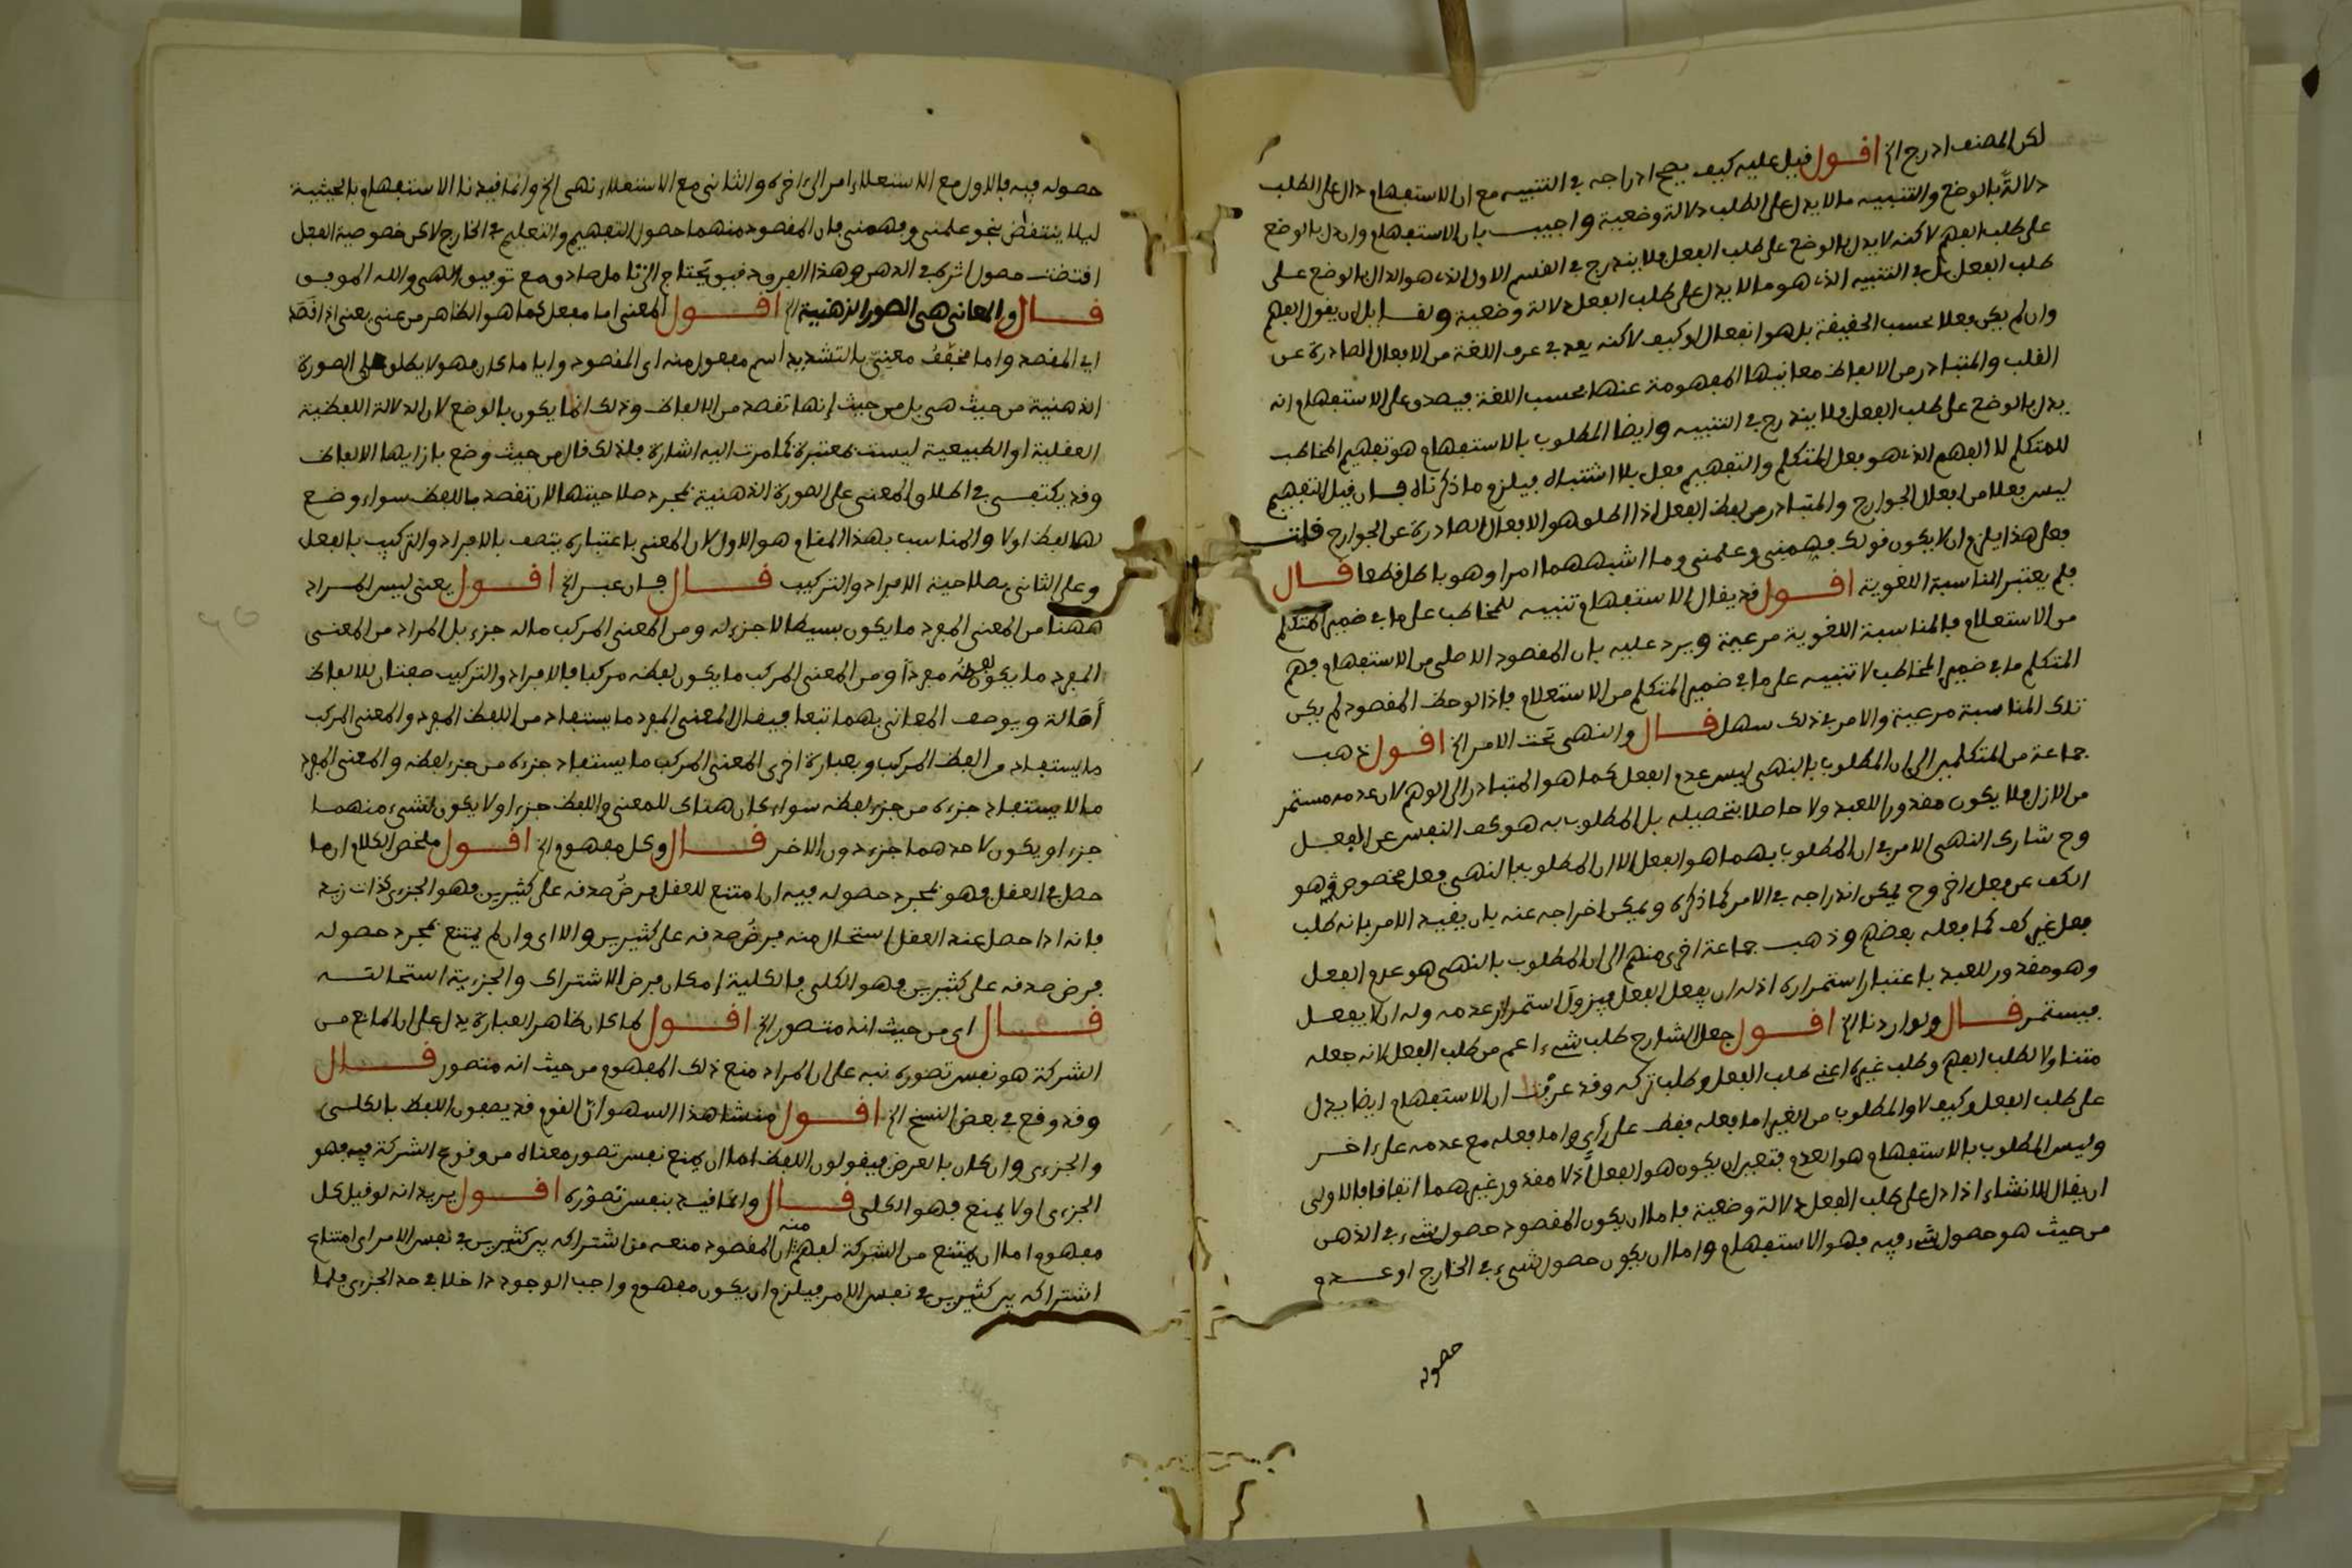 لكن المصنف ادرج الخ اقول قيل عليه كيف يصح ادراجه في التنبيه مع ان الاستفهام دال على الطلب
دلالة بالوضع والتنبيه ما لا يدل على الطلب دلالة وضعية واجيب بان الاستفهام وان دل بالوضع
على طلب الفهم لاكنه لا يدل بالوضع على طلب الفعل فلا يندرج في القسم الاول الذي هو الدال بالوضع على
طلب الفعل بل في التنبيه الذي هو ما لا يدل على طلب الفعل دلالة وضعية ولقائل ان يقول الفهم
وان لم يكن فعلا بحسب الحقيقة بل هو انفعال او كيف لاكنه يعد في عرف اللغة من الافعال الصادرة عن
القلب والمتبادر من الالفاظ معانيها المفهومة عنها بحسب اللغة فيصدق على الاستفهام انه
يدل بالوضع على طلب الفعل فلا يندرج في التنبيه وايضا المطلوب بالاستفهام هو تفهيم المخاطب
للمتكلم لا الفهم الذي هو فعل المتكلم والتفهيم فعل بلا اشتباه فيلزم ما ذكرناه فان قيل التفهيم
ليس فعلا من افعال الجوارح والمتبادر من لفظ الفعل اذا اطلق هو الافعال الصادرة عن الجوارح قلت
فعلى هذا يلزم ان لا يكون قولك فهمني وعلمني وما اشبههما امرا وهو باطل قطعا قال
فلم يعتبر المناسبة اللغوية اقول قد يقال الاستفهام تنبيه للمخاطب على ما في ضمير المتكلم
من الاستعلام فالمناسبة اللغوية مرعية ويرد عليه بان المقصود الاصلي من الاستفهام فهم
المتكلم ما في ضمير المخاطب لا تنبيه على ما في ضمير المتكلم من الاستعلام فاذا لوحظ المقصود لم يكن
تلك المناسبة مرعية والامر في ذلك سهل قال والنهي تحت الامر الخ اقول ذهب
جماعة من المتكلمين الى ان المطلوب بالنهي ليس عدم الفعل كما هو المتبادر الى الوهم لان عدمه مستمر
من الازل فلا يكون مقدورا للعبد ولا حاصلا بتحصيله بل المطلوب به هو كف النفس عن الفعل
وح شارك النهي الامر في ان المطلوب بهما هو الفعل الا ان المطلوب بالنهي فعل مخصوص وهو
الكف عن فعل اخر وح يمكن اندراجه في الامر كما ذكره ويمكن اخراجه عنه بان يقيد الامر بانه طلب
فعل غير كف كما فعله بعضهم وذهب جماعة اخرى منهم الى ان المطلوب بالنهي هو عدم الفعل
وهو مقدور للعبد باعتبار استمراره اذ له ان يفعل الفعل فيزول استمرار عدمه وله ان لا يفعل
فيستمر قال ولو اردنا الخ اقول جعل الشارح طلب شيء اعم من طلب الفعل لانه جعله
متناولا لطلب الفهم وطلب غيره اعني طلب الفعل وطلب تركه وقد عرفت ان الاستفهام ايضا يدل
على طلب الفعل وكيف لا والمطلوب من الغير اما فعله فقط على رأي واما فعله مع عدمه على اخر
وليس المطلوب بالاستفهام هو العدم فتعين ان يكون هو الفعل اذ لا مقدور غيرهما اتفاقا فالاولى
ان يقال الانشاء اذا دل على طلب الفعل دلالة وضعية فاما ان يكون المقصود حصول شيء في الذهن
من حيث هو حصول شيء فيه فهو الاستفهام واما ان يكون حصول شيء في الخارج او عدم
حصوله
حصوله فيه فالاول مع الاستعلاء امر الى اخره والثاني مع الاستعلاء نهي الخ وانما قيدنا الاستفهام بالحيثية
ليلا ينتقض بنحو علمني وفهمني فان المقصود منهما حصول التفهيم والتعليم في الخارج لاكن خصوصية الفعل
اقتضت حصول اثره في الذهن وهذا الفرق دقيق يحتاج الى تامل صادق مع توفيق الهي والله الموفق
قال والمعاني هي الصور الذهنية الخ اقول المعنى اما مفعل كما هو الظاهر من عنى يعني اذا قصد
اي المقصد واما مخفف معنيّ بالتشديد اسم مفعول منه اي المقصود وايا ما كان فهو لا يطلق على الصورة
الذهنية من حيث هي بل من حيث انها تقصد من الالفاظ وذلك انما يكون بالوضع لان الدلالة اللفظية
العقلية او الطبيعية ليست بمعتبرة كما مرت اليه اشارة فلذلك قال من حيث وضع بازايها الالفاظ
وقد يكتفى في اطلاق المعنى على الصورة الذهنية بمجرد صلاحيتها لان تقصد باللفظ سواء وضع
لها لفظ او لا والمناسب بهذا المقام هو الاول لان المعنى باعتباره يتصف بالافراد والتركيب بالفعل
وعلى الثاني بصلاحية الافراد والتركيب قال فان عبر الخ اقول يعني ليس المراد
ههنا من المعنى المفرد ما يكون بسيطا لا جزء له ومن المعنى المركب ما له جزء بل المراد من المعنى
المفرد ما يكون لفظه مفردا ومن المعنى المركب ما يكون لفظه مركبا فالافراد والتركيب صفتان للالفاظ
أصالة ويوصف المعاني بهما تبعا فيقال المعنى المفرد ما يستفاد من اللفظ المفرد والمعنى المركب
ما يستفاد من اللفظ المركب وبعبارة اخرى المعنى المركب ما يستفاد جزءه من جزء لفظه والمعنى المفرد
ما لا يستفاد جزءه من جزء لفظه سواء كان هناك للمعنى واللفظ جزء او لا يكون لشيء منهما
جزء او يكون لاحدهما جزء دون الاخر قال وكل مفهوم الخ اقول ملخص الكلام ان ما
حصل في العقل فهو بمجرد حصوله فيه ان امتنع للعقل فرض صدقه على كثيرين فهو الجزءي كذات زيد
فانه اذا حصل عند العقل استحال منه فرض صدقه على كثيرين والا اي وان لم يمتنع بمجرد حصوله
فرض صدقه على كثيرين فهو الكلي فالكلية امكان فرض الاشتراك والجزءية استحالته
قال اي من حيث انه متصور الخ اقول لما كان ظاهر العبارة يدل على ان المانع من
الشركة هو نفس تصوره نبه على ان المراد منع ذلك المفهوم من حيث انه متصور قال
وقد وقع في بعض النسخ الخ اقول منشا هذا السهو ان القوم قد يصفون اللفظ بالكلي
والجزءي وان كان بالعرض فيقولون اللفظ اما ان يمنع نفس تصور معناه من وقوع الشركة فيه فهو
الجزءي او لا يمنع فهو الكلي قال وانما قيد بنفس تصوره اقول يريد انه لو قيل كل
مفهوم اما ان يمتنع من الشركة لفهم منه ان المقصود منعه من اشتراكه بين كثيرين في نفس الامر اي امتناع
اشتراكه بين كثيرين في نفس الامر فيلزم ان يكون مفهوم واجب الوجود داخلا في حد الجزءي فلما